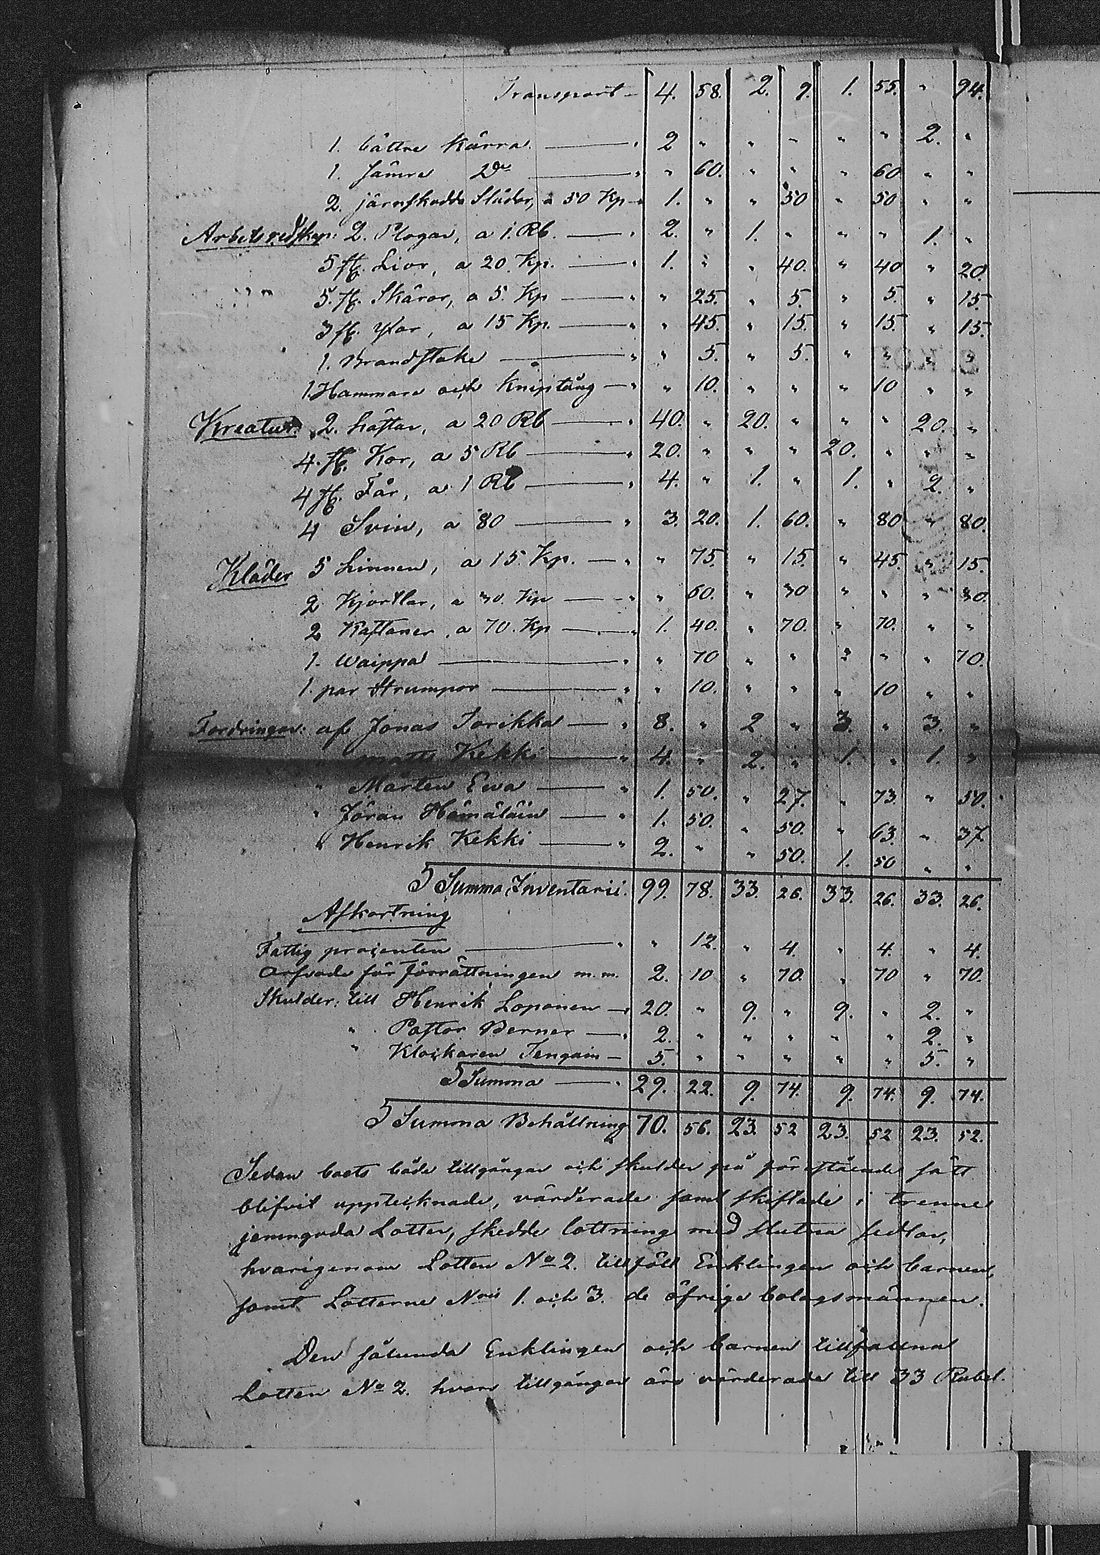 Transport — 4. 58. 2. 9. 1. 55. " 94.
1. bättre Kärra — " 2 " " " " " 2. "
1. sämre Do — " " 60. " " " 60 " "
2. järnskodde Slädar, a 50 Kp — 1. " " 50 " 50 " "
Arbetsredskap: 2. Plogar, a 1. Rb. — 2. " 1. " " " 1. "
5 st. Lior, a 20. Kp. — 1. " " 40. " 40 " 20.
5. st. Skäror, a 5. Kp — " " 25. " 5. " 5. " 15.
3 st. Yxor, a 15 Kp. — " " 45. " 15. " 15. " 15.
1. Brandstake — " " 5. " 5. " " " "
1 Hammare och Kniptång — " " 10. " " " 10 " "
Kreatur. 2. Hästar, a 20 Rb — " 40. " 20. " " " 20. "
4. st. Kor, a 5 Rb — " 20. " " " 20. " " "
4 st. Får, a 1 Rb — " 4. " 1. " 1. " 2. "
4 Svin, a 80 — " 3. 20. 1. 60. " 80 " 80.
Kläder 5 Linnen, a 15. Kp. — " " 75. " 15. " 45. " 15.
2 Kjortlar, a 30. Kp — " " 60. " 30 " " " 30.
2 Kaftaner, a 70. Kp — " 1. 40. " 70. " 70. " "
1. Waippa — " " 70 " " " " " 70.
1. par Strumpor — " " 10. " " " 10 " "
Fordringar: af Jonas Torikka — " 8. " 2 " 3. " 3. "
" Matts Kekki — " 4. " 2. " 1. " 1. "
" Mårten Ewa — " 1. 50. " 27. " 73. " 50.
" Jöran Hämäläin — " 1. 50. " 50. " 63. " 37.
" Henrik Kekki — " 2. " " 50. 1. 50 " "
Summa Inventarii. 99. 78. 33. 26. 33. 26. 33. 26.
Afkortning
Fattig procenten — " " 12. " 4. " 4. " 4.
Arfvode för förrättningen m.m. 2. 10 " 70. " 70 " 70.
Skulder: till Henrik Loponen — 20. " 9. " 9. " 2. "
" Pastor Berner — 2. " " " " " 2. "
" Klockaren Tengain — 5. " " " " " 5. "
Summa — " 29. 22. 9. 74. 9. 74. 9. 74.
Summa Behållning 70. 56. 23. 52 23. 52 23. 52.
Sedan boets både tillgångar och skulder på förestående sätt
blifvit upptecknade, värderade samt skiftade i trenne
jemngoda Lotter, skedde lottning med slutna sedlar,
hvarigenom Lotten No 2. tillföll Enklingen och barnen,
samt Lotterne Nris 1. och 3. de öfrige bolagsmännen.
Den sålunda Enklingen och barnen tillfallna
Lotten No 2. hvars tillgångar äro värderade till 33 Rubel.